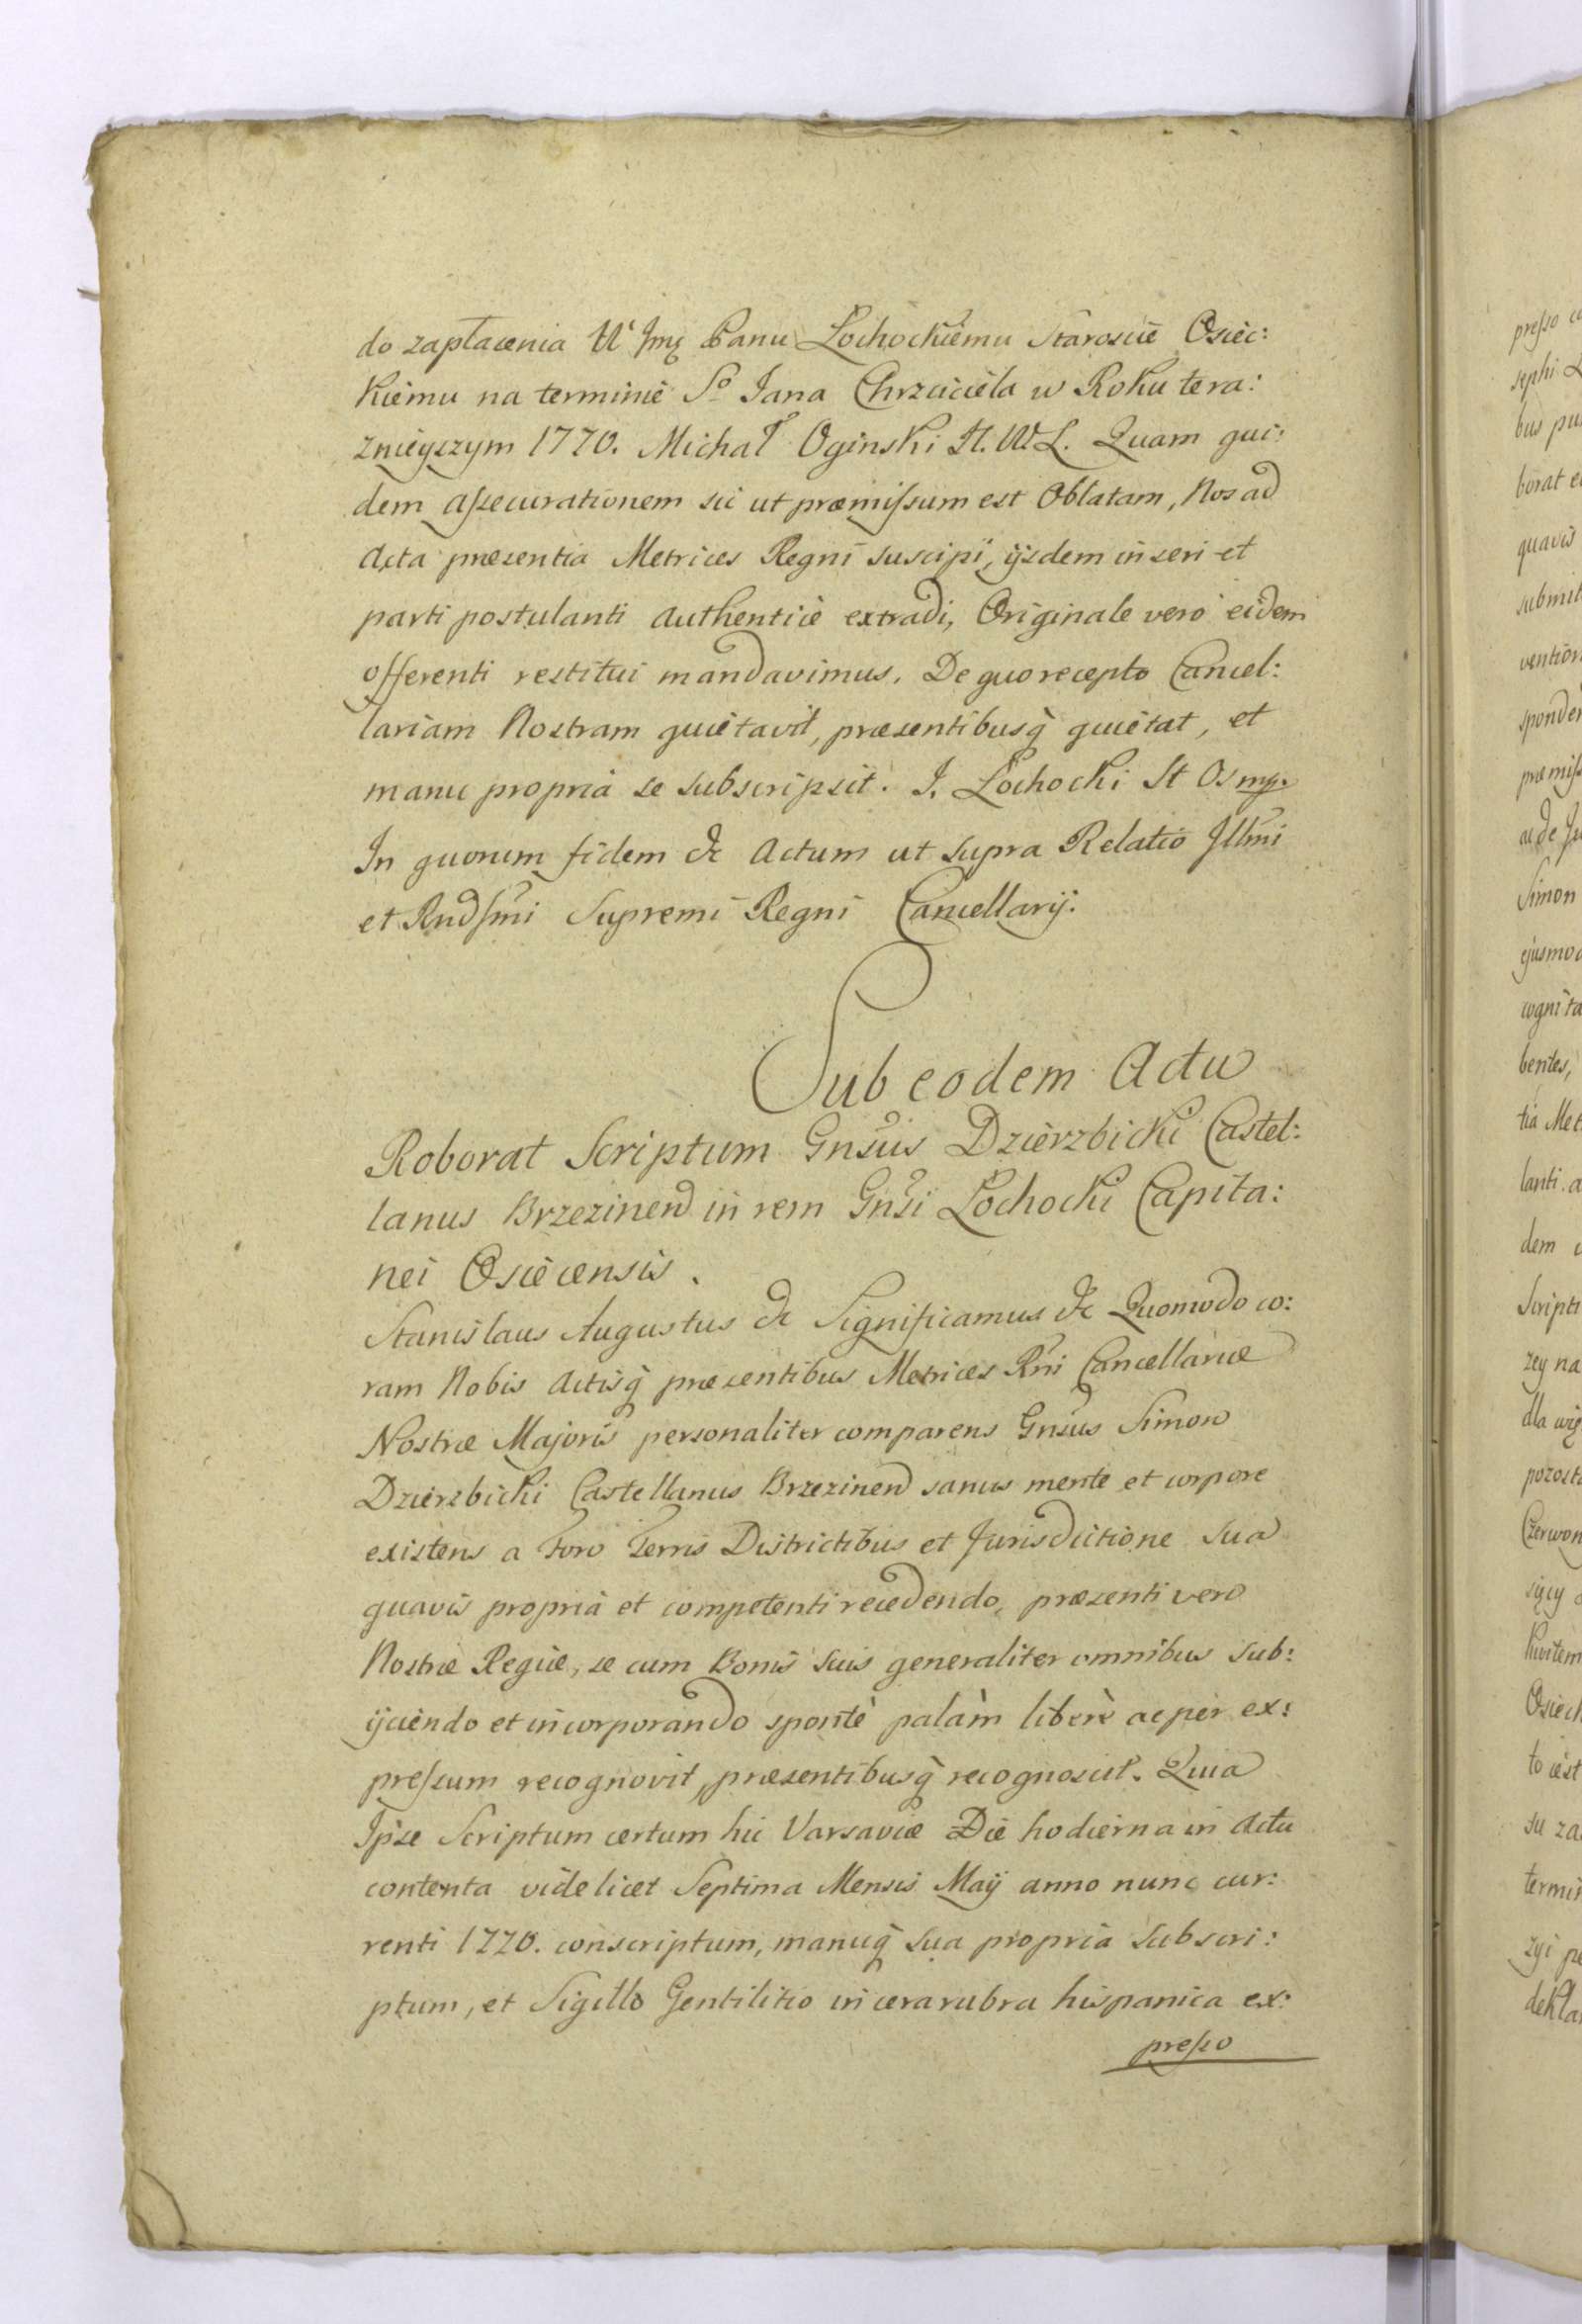 do zapłacenia W Jmę Panu Łochockiemu Staroscie Osiec:
kiemu na terminie So Jana Chrzciciela w Roku tera:
znieyszym 1770. Michał Oginski H. W. L. Quam qui:
dem assecurationem sic ut præmissum est Oblatam, Nos ad
Acta præsentia Metrices Regni suscipi, ijsdem inseri et
parti postulanti authenticè extradi, Originale verò eidem
offerenti restitui mandavimus. De quo recepto Cancel:
lariam Nostram quietavit, præsentibusq quietat, et
manu propria se subscripsit. J. Łochocki St Os mp.
In quorum fidem &c Actum ut supra Relatio Illmi
et Rndssmi Supremi Regni Cancellarij.
Sub eodem Actu
Roborat Scriptum Gnsus Dzierzbicki Castel:
lanus Brzezinen in rem Gnsi Łochocki Capita:
nei Osiecensis.
Stanislaus Augustus &c Significamus &c Quomodo co:
ram Nobis Actisq præsentibus Metrices Rni Cancellariæ
Nostræ Majoris personaliter comparens Gnsus Simon
Dzierzbicki Castellanus Brzezinen sanus mente et corpore
existens a Foro Terris Districtibus et Jurisdictione sua
quavis propria et competenti recedendo, præsenti vero
Nostræ Regiæ, se cum Bonis suis generaliter omnibus sub:
ijciendo et incorporando spontè palàm liberè ac per ex:
pressum recognovit, præsentibusq recognoscit. Quia
Ipse Scriptum certum hic Varsaviæ Die hodierna in Actu
contenta videlicet Septima Mensis Maij anno nunc cur:
renti 1770. conscriptum, manuq sua propria subscri:
ptum, et Sigillo Gentilitio in cera rubra hispanica ex:
presso